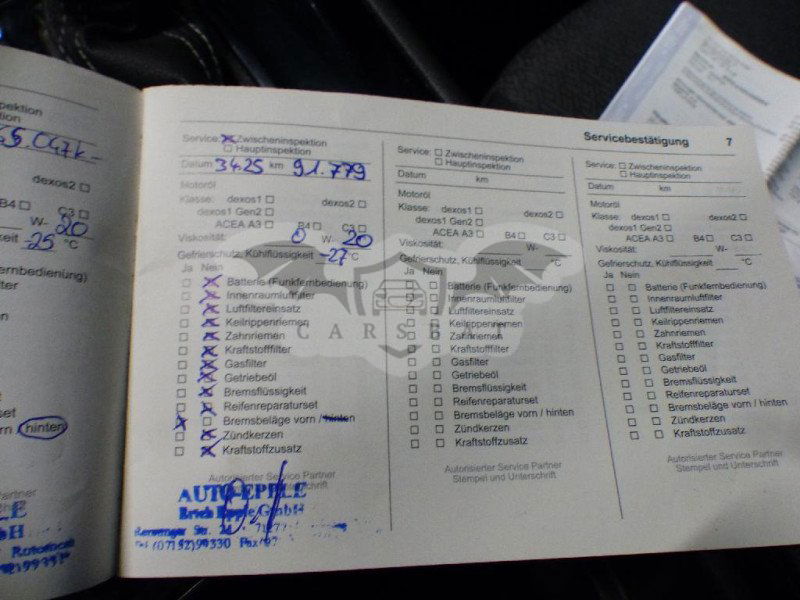 Servicebestätigung 7
spektion
ion
65.047k-
dexos2
B4 C3
W- 20
eit -25 °C
ernbedienung)
lter
rset
rn / hinten
Partner
chrift
Service: Zwischeninspektion
Hauptinspektion
Datum 3425 km 91.779
Motoröl
Klasse: dexos1 dexos2
dexos1 Gen2
ACEA A3 B4 C3
Viskosität: 0 W- 20
Gefrierschutz, Kühlflüssigkeit -27 °C
Ja Nein
Batterie (Funkfernbedienung)
Innenraumluftfilter
Luftfiltereinsatz
Keilrippenriemen
Zahnriemen
Kraftstofffilter
Gasfilter
Getriebeöl
Bremsflüssigkeit
Reifenreparaturset
Bremsbeläge vorn / hinten
Zündkerzen
Kraftstoffzusatz
Autorisierter Service Partner
AUTO-EPPLE
Erich Epple GmbH
Str. 24
Tel (07152) 99330 Fax/
Service: Zwischeninspektion
Hauptinspektion
Datum km
Motoröl
Klasse: dexos1 dexos2
dexos1 Gen2
ACEA A3 B4 C3
Viskosität: W-
Gefrierschutz, Kühlflüssigkeit °C
Ja Nein
Batterie (Funkfernbedienung)
Innenraumluftfilter
Luftfiltereinsatz
Keilrippenriemen
Zahnriemen
Kraftstofffilter
Gasfilter
Getriebeöl
Bremsflüssigkeit
Reifenreparaturset
Bremsbeläge vorn / hinten
Zündkerzen
Kraftstoffzusatz
Autorisierter Service Partner
Stempel und Unterschrift
Service: Zwischeninspektion
Hauptinspektion
Datum km
Motoröl
Klasse: dexos1 dexos2
dexos1 Gen2
ACEA A3 B4 C3
Viskosität: W-
Gefrierschutz, Kühlflüssigkeit °C
Ja Nein
Batterie (Funkfernbedienung)
Innenraumluftfilter
Luftfiltereinsatz
Keilrippenriemen
Zahnriemen
Kraftstofffilter
Gasfilter
Getriebeöl
Bremsflüssigkeit
Reifenreparaturset
Bremsbeläge vorn / hinten
Zündkerzen
Kraftstoffzusatz
Autorisierter Service Partner
Stempel und Unterschrift